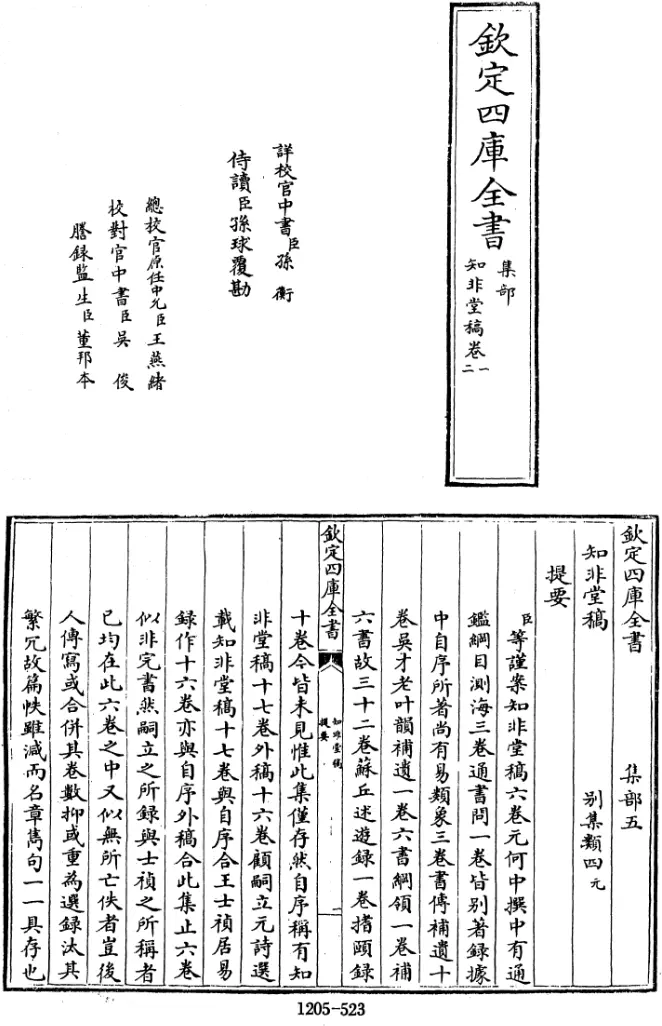 欽定四庫全書
集部
知非堂稿卷一
二
詳校官中書臣孫衡
侍讀臣孫球覆勘
總校官原任中允臣王燕緒
校對官中書臣吳俊
謄錄監生臣董邦本
欽定四庫全書 集部五
知非堂稿 别集類四元
提要
臣等謹案知非堂稿六卷元何中撰中有通
鑑綱目測海三卷通書問一卷皆别著録據
中自序所著尚有易類象三卷書傳補遺十
卷吳才老叶韻補遺一卷六書綱領一卷補
六書故三十二卷蘇丘述遊録一卷揩頤録
欽定四庫全書 知非堂稿
提要 一
十卷今皆未見惟此集僅存然自序稱有知
非堂稿十七卷外稿十六卷顧嗣立元詩選
載知非堂稿十七卷與自序合王士禎居易
録作十六卷亦與自序外稿合此集止六卷
似非完書然嗣立之所録與士禎之所稱者
已均在此六卷之中又似無所亡佚者豈後
人傳寫或合併其卷數抑或重為選録汰其
繁冗故篇帙雖減而名章雋句一一具存也
1205-523